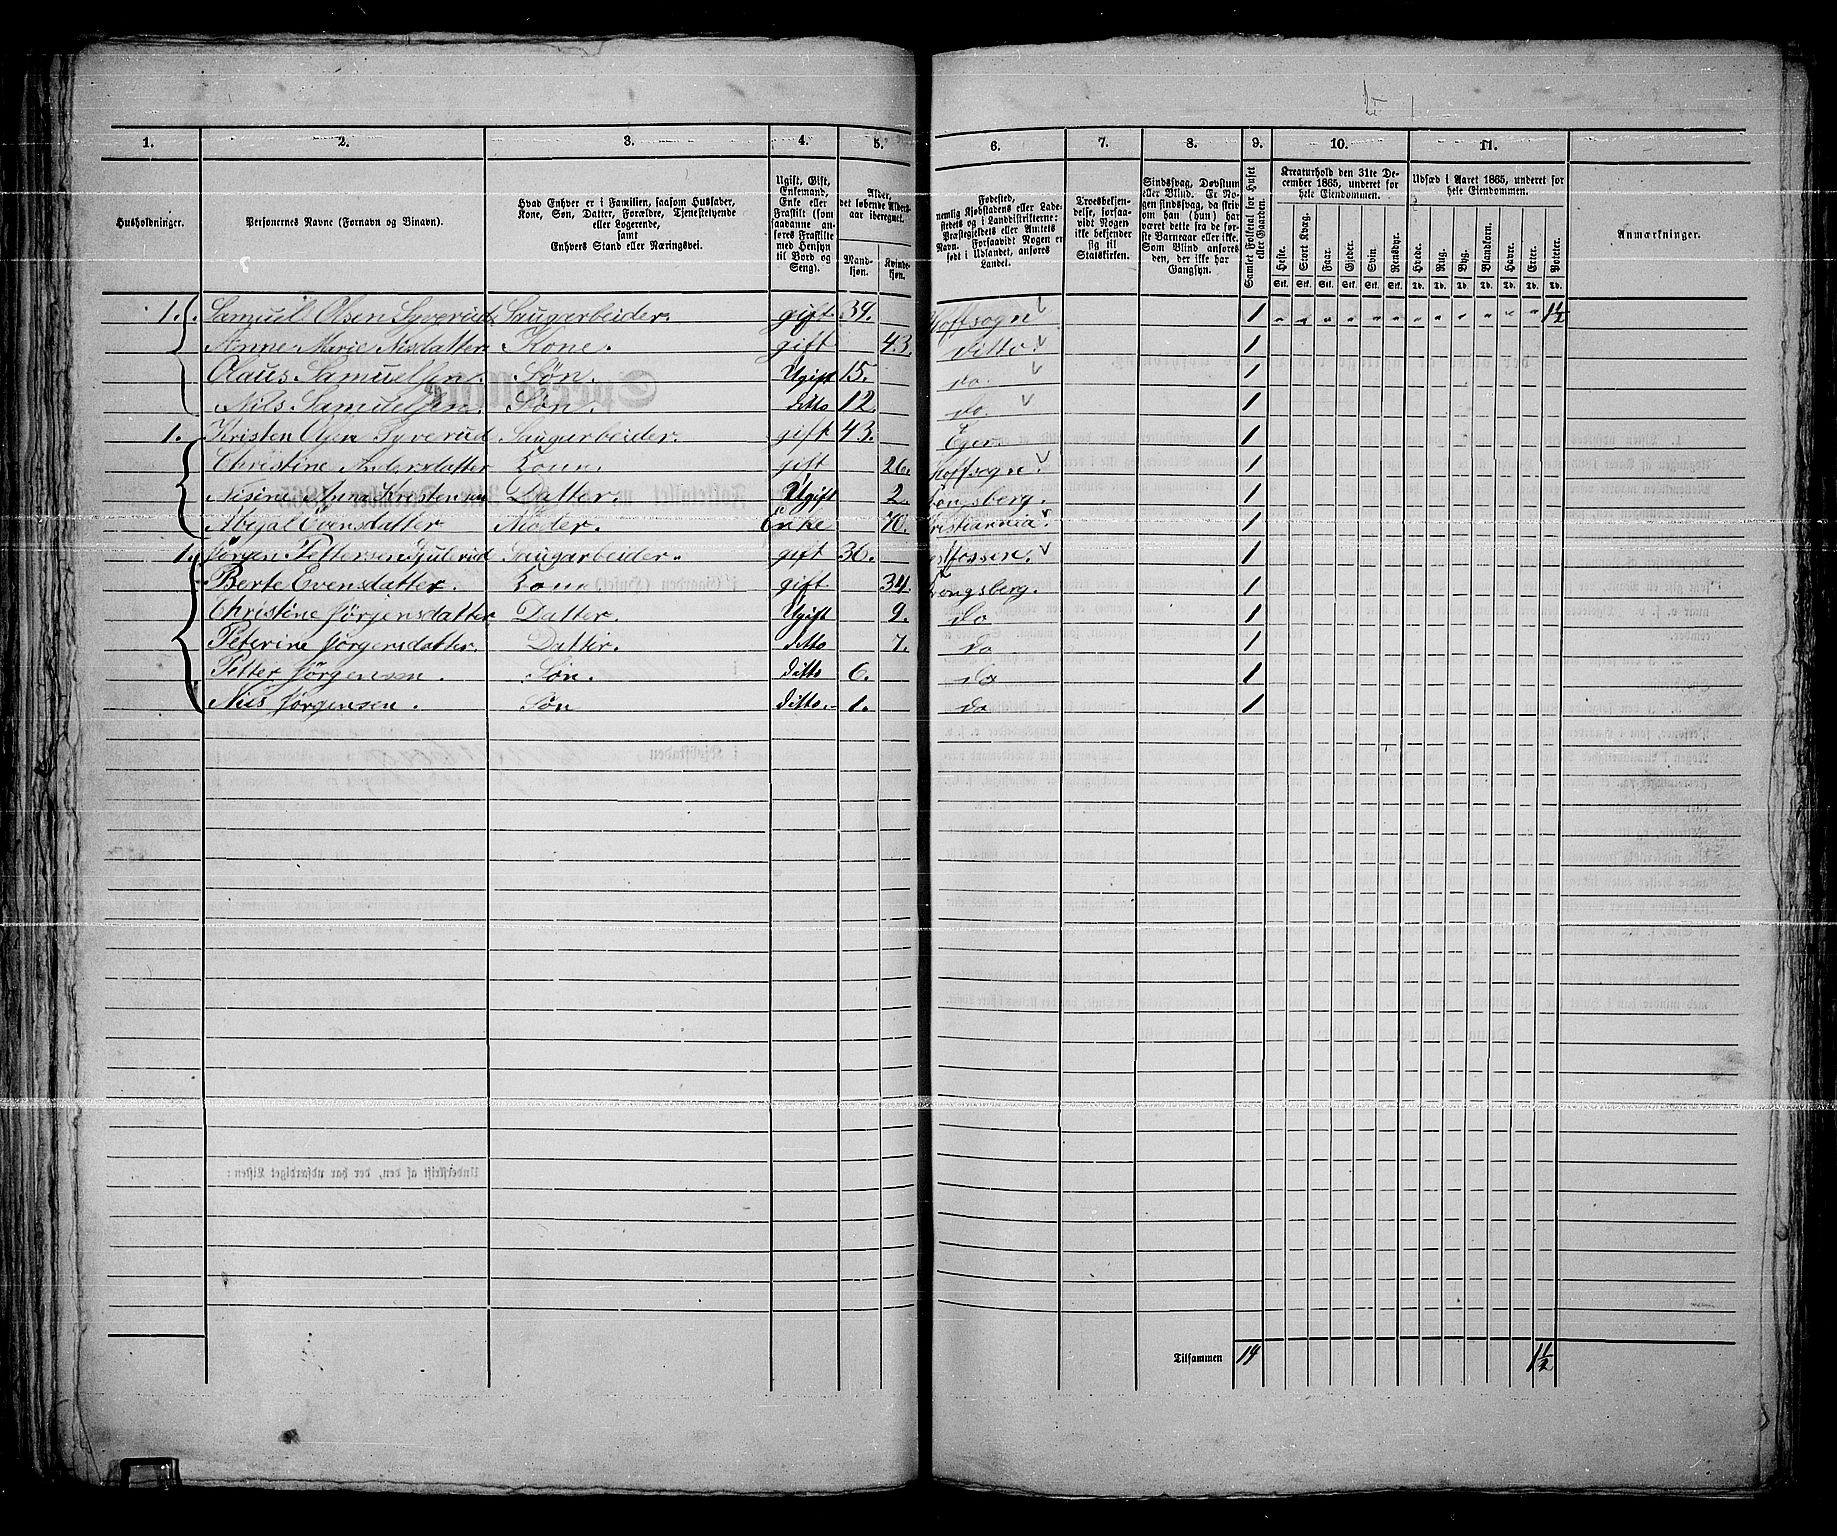 1. 2. 3. 4. 5. 6. 7. 8. 9. 10. 11.
Husholdninger.
Personernes Navne (Fornavn og Binavn).
Hvad Enhver er i Familien, saasom Husfader, Kone, Søn, Datter, Forældre, Tjenestetyende eller Logerende, samt Enhvers Stand eller Næringsvei.
Ugift, Gift, Enkemand, Enke eller Fraskilt (som saadanne anføres Fraskilte med Hensyn til Bord og Seng).
Alder, det løbende Aldersaar iberegnet.
Mandkjøn. Kvindekjøn.
Fødested, nemlig Kjøbstadens eller Ladestedets og i Landdistrikterne: Præstegjeldets eller Amtets Navn. Forsaavidt Nogen er født i Udlandet, anføres Landet.
Troesbekjendelse, forsaavidt Nogen ikke bekjender sig til Statskirken.
Sindssvag, Døvstum eller Blind. Er Nogen sindssvag, da skrives om han (hun) har været dette fra de første Barneaar eller ikke. Som Blind anføres den, der ikke har Gangsyn.
Samlet Folketal for Huset eller Gaarden.
Kreaturhold den 31te December 1865, underet for hele Eiendommen.
Heste. Stort Kvæg. Faar. Gjeder. Svin. Rensdyr.
Stk. Stk. Stk. Stk. Stk. Stk.
Udsæd i Aaret 1865, underet for hele Eiendommen.
Hvede. Rug. Byg. Blandkorn. Havre. Erter. Poteter.
Td. Td. Td. Td. Td. Td. Td.
Anmærkninger.
1. Samuel Olsen Syverud Saugarbeider. gift. 39. Hoffsogn 1 " " " " " " " " " " " " 1½
Anne Marie Nilsdatter Kone. gift 43. ditto. 1
Claus Samuelsen. Søn. Ugift 15. do. 1
Nils Samuelsen. Søn. ditto 12. do. 1
1. Kristen Olsen Syverud Saugarbeider. gift 43. Eger 1
Christine Andersdatter Kone. gift 26. Hoffsogn. 1
Nisine Anna Kristensen Datter. Ugift 2. Kongsberg. 1
Abigal Evensdatter Moder. Enke 70. Kristiannia. 1
1. Jørgen Pettersen Saugarbeider. gift 36. 1
Berte Evensdatter. Kone gift 34. Kongsberg. 1
Christine Jørgensdatter Datter. Ugift 9. do 1
Peterine Jørgensdatter. Datter. ditto 7. do 1
Petter Jørgensen. Søn. ditto 6. do 1
Nils Jørgensen. Søn ditto. 1. do 1
Tilsammen 14 1½